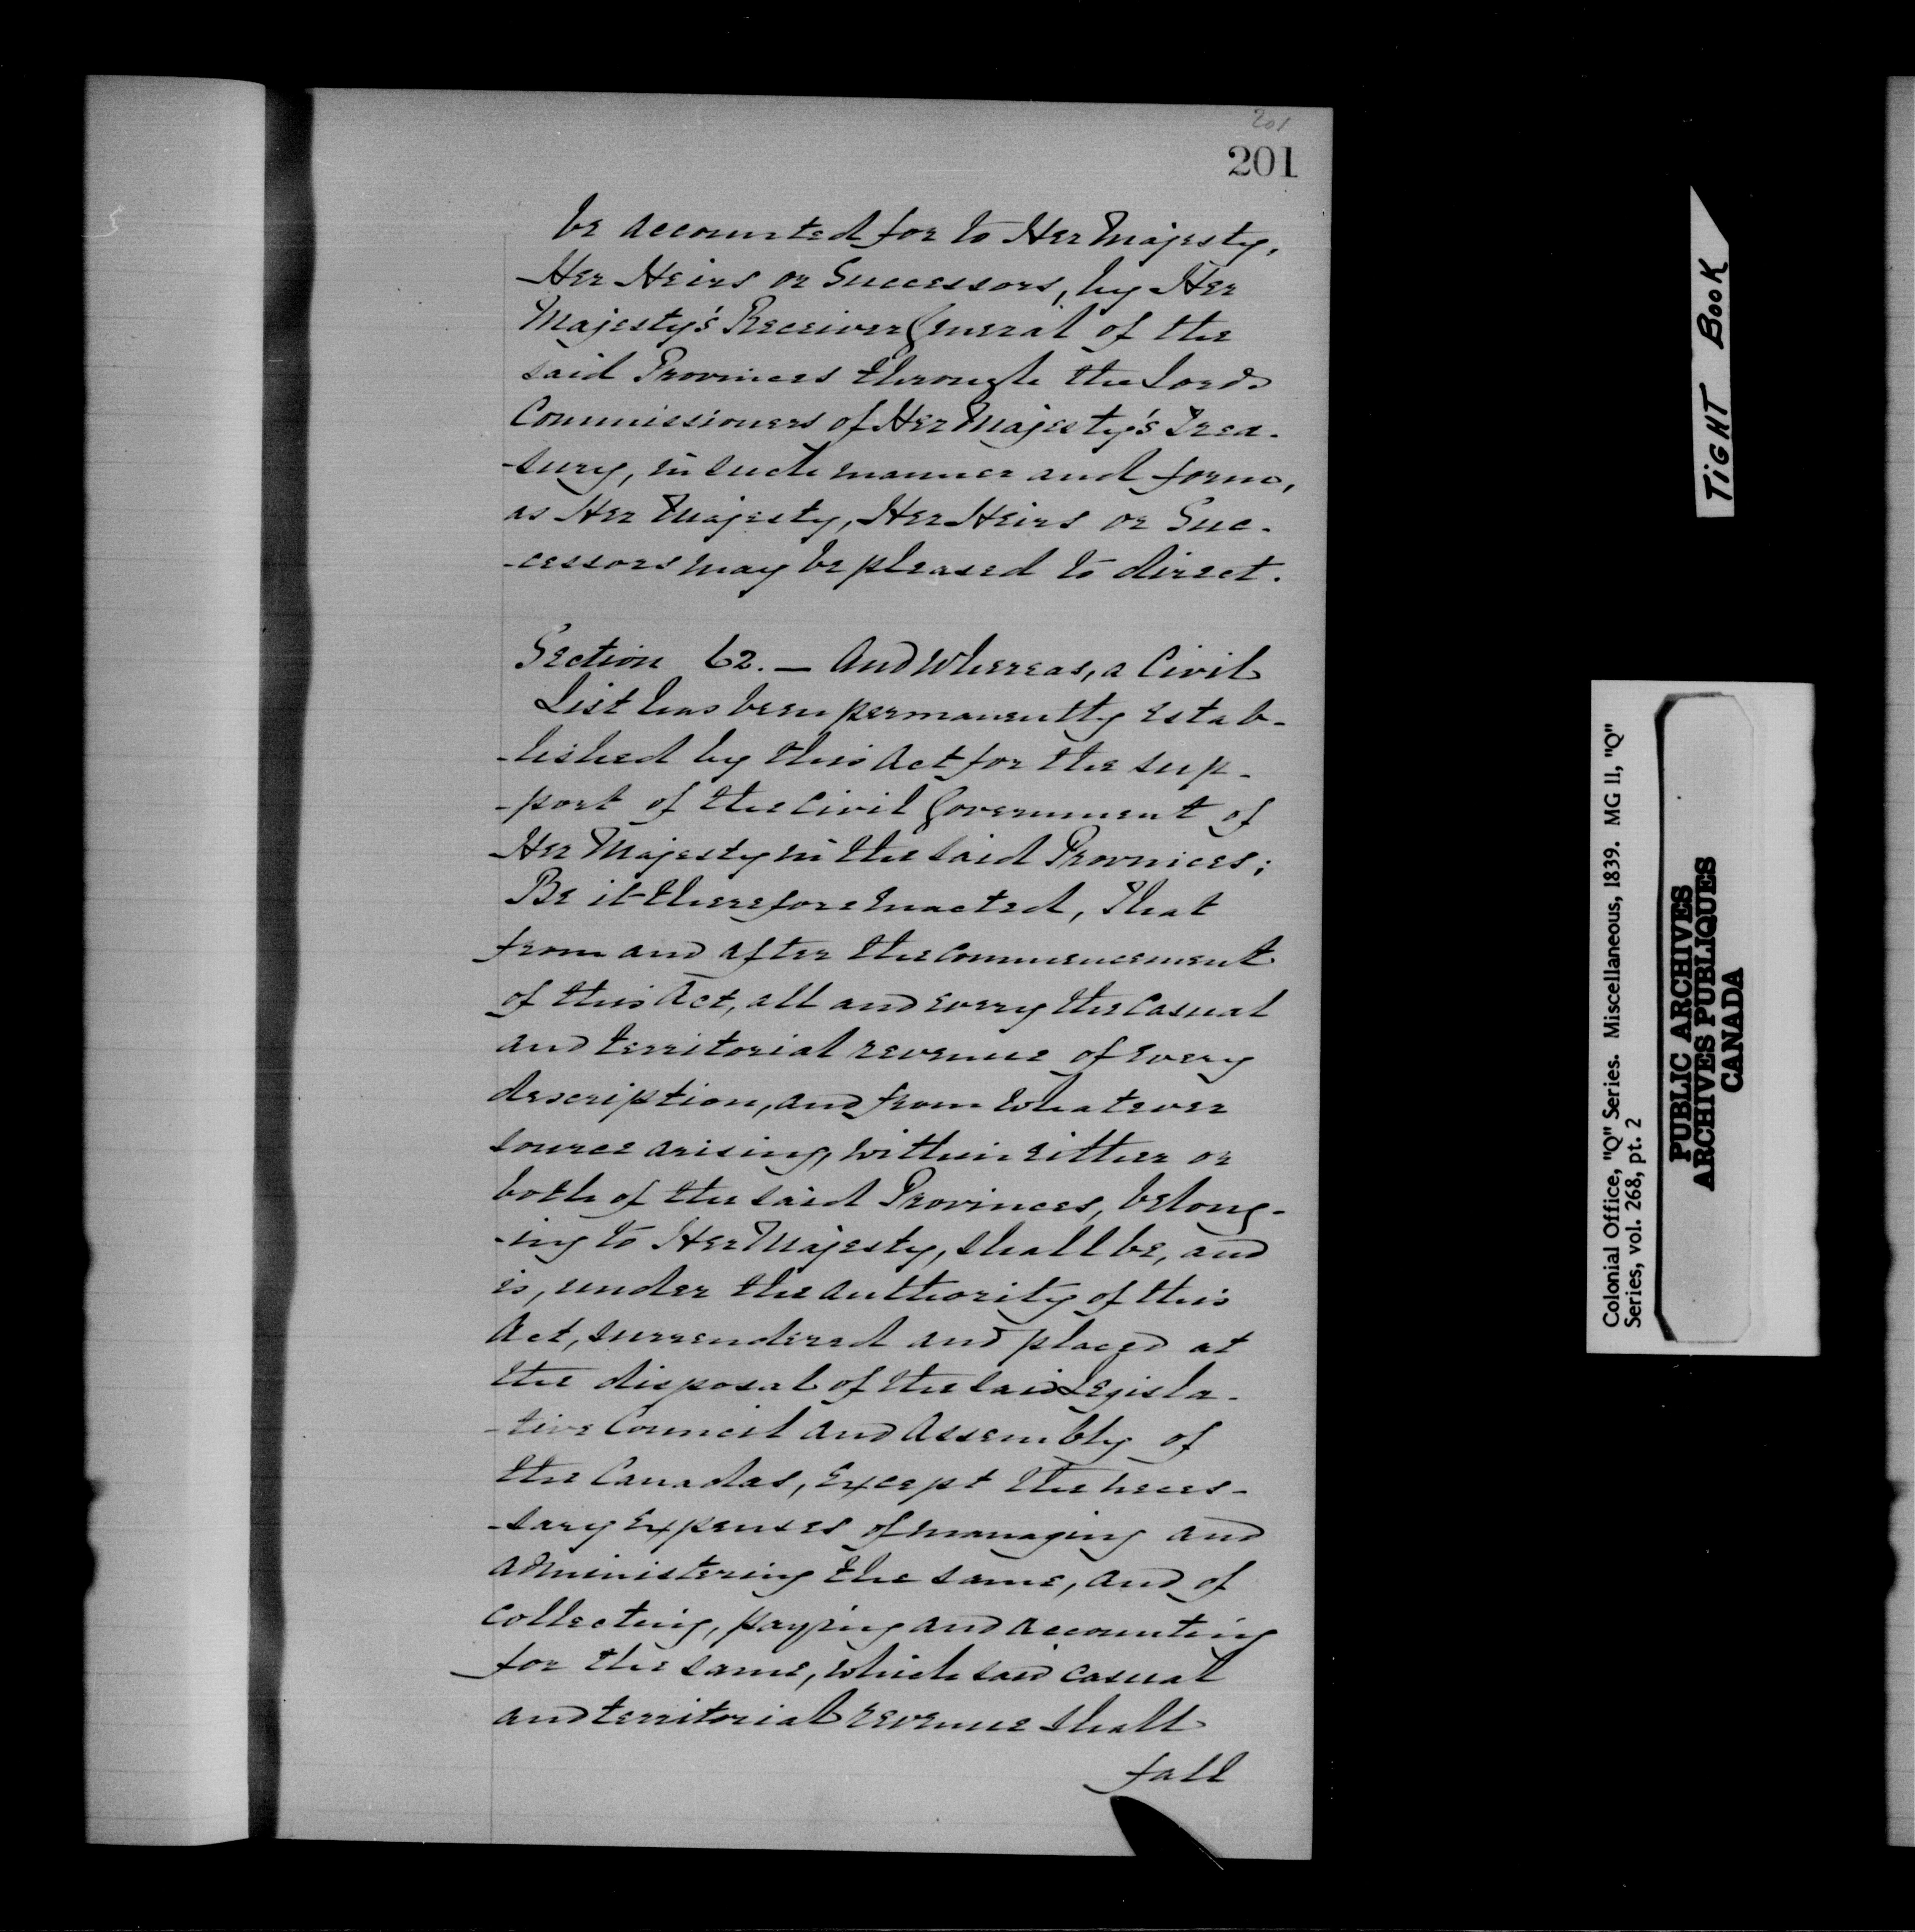 201
201
be accounted for to Her Majesty,
Her Heirs or Successors, by Her
Majesty's Receiver General of the
said Provinces through the Lords
Commissioners of Her Majesty's Trea-
-sury, in such manner and form,
as Her Majesty, Her Heirs or Suc-
-cessors may be pleased to direct.
Section 62. — And Whereas, a Civil
List has been permanently estab-
-lished by this Act for the sup-
-port of the Civil Government of
Her Majesty in the said Provinces;
Be it therefore enacted, That
from and after the commencement
of this Act, all and every the casual
and territorial revenue of every
description, and from whatever
source arising, within either or
both of the said Provinces, belong-
-ing to Her Majesty, shall be, and
is, under the authority of this
Act, surrendered and placed at
the disposal of the said Legisla-
-tive Council and Assembly of
the Canadas, except the neces-
-sary expenses of managing and
administering the same, and of
collecting, paying and accounting
for the same, which said casual
and territorial revenue shall
fall
TIGHT BOOK
Colonial Office, "Q" Series. Miscellaneous, 1839. MG 11, "Q"
Series, vol. 268, pt. 2
PUBLIC ARCHIVES
ARCHIVES PUBLIQUES
CANADA